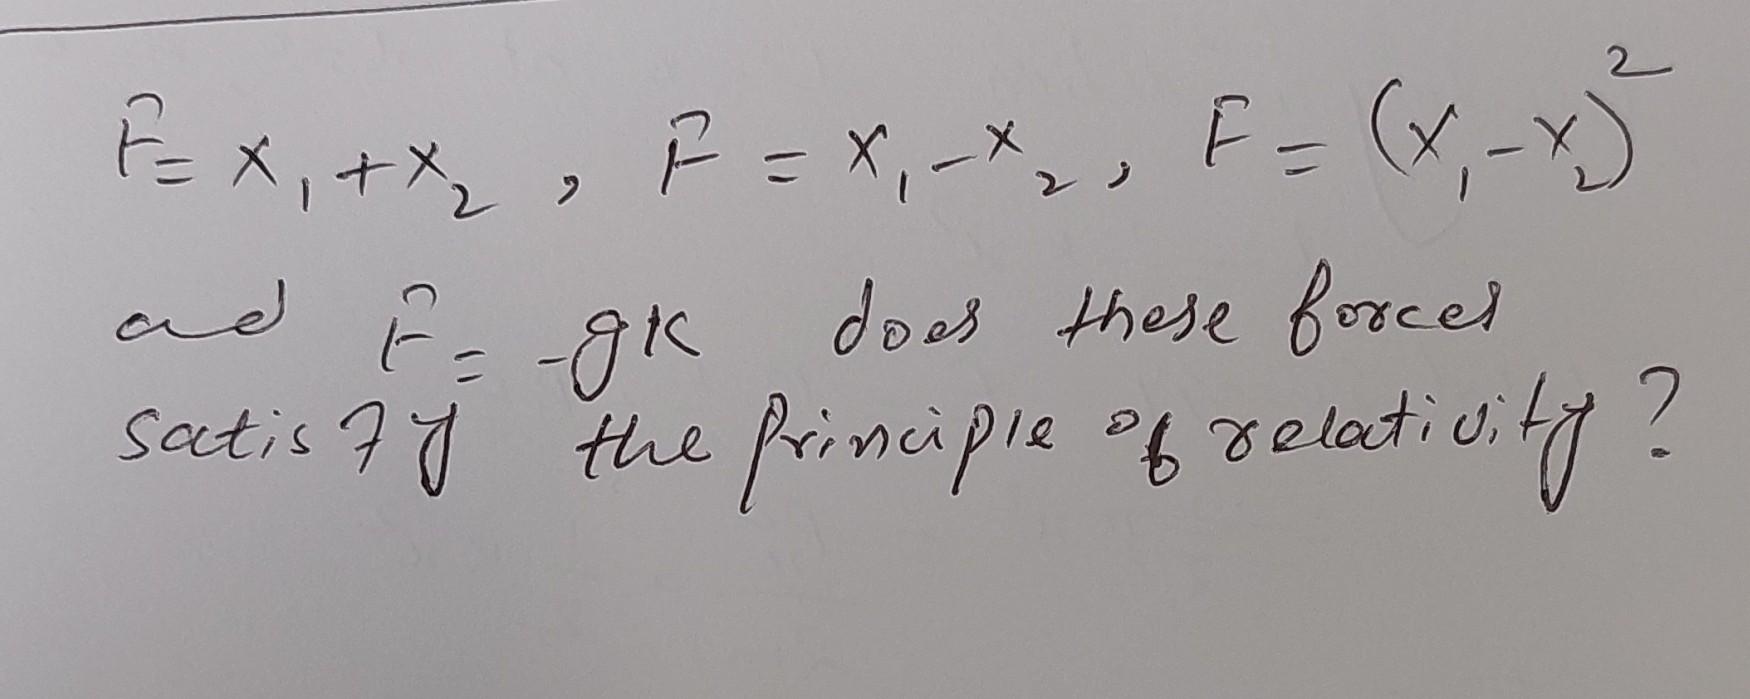 F̂ = x₁ + x₂ , F̂ = x₁ - x₂ , F = (x₁ - x₂)²
and F̂ = -gk does these forces
satisfy the principle of relativity ?